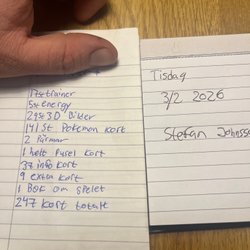 17st trainer
5st energy
29st 3D Bilder
141 St Pokemon kort
2 Pärmar
1 helt Pusel kort
37 info kort
9 extra kort
1 Bok om spelet
247 kort totalt
Tisdag
3/2 2026
Stefan